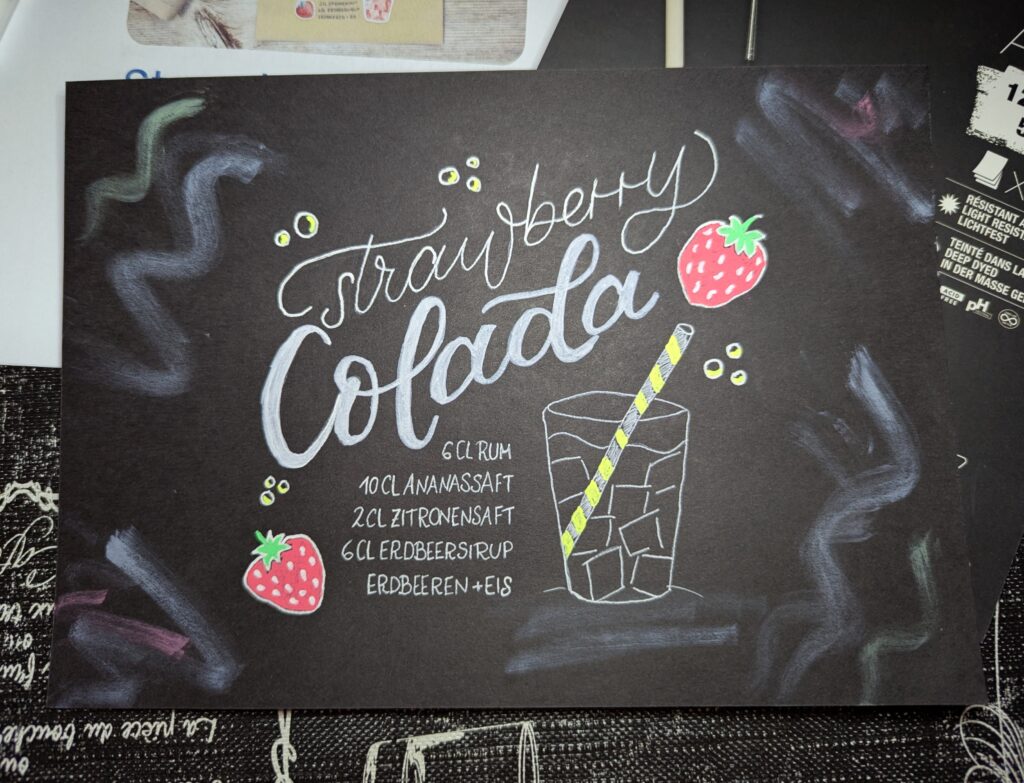 strawberry
Colada
6 CL RUM
10 CL ANANASSAFT
2 CL ZITRONENSAFT
6 CL ERDBEERSIRUP
ERDBEEREN + EIS
RÉSISTANT
LIGHT RESIST
LICHTFEST
TEINTÉ DANS LA
DEEP DYED
IN DER MASSE GE
ACID
FREE
pH
La pièce du bouche
ou